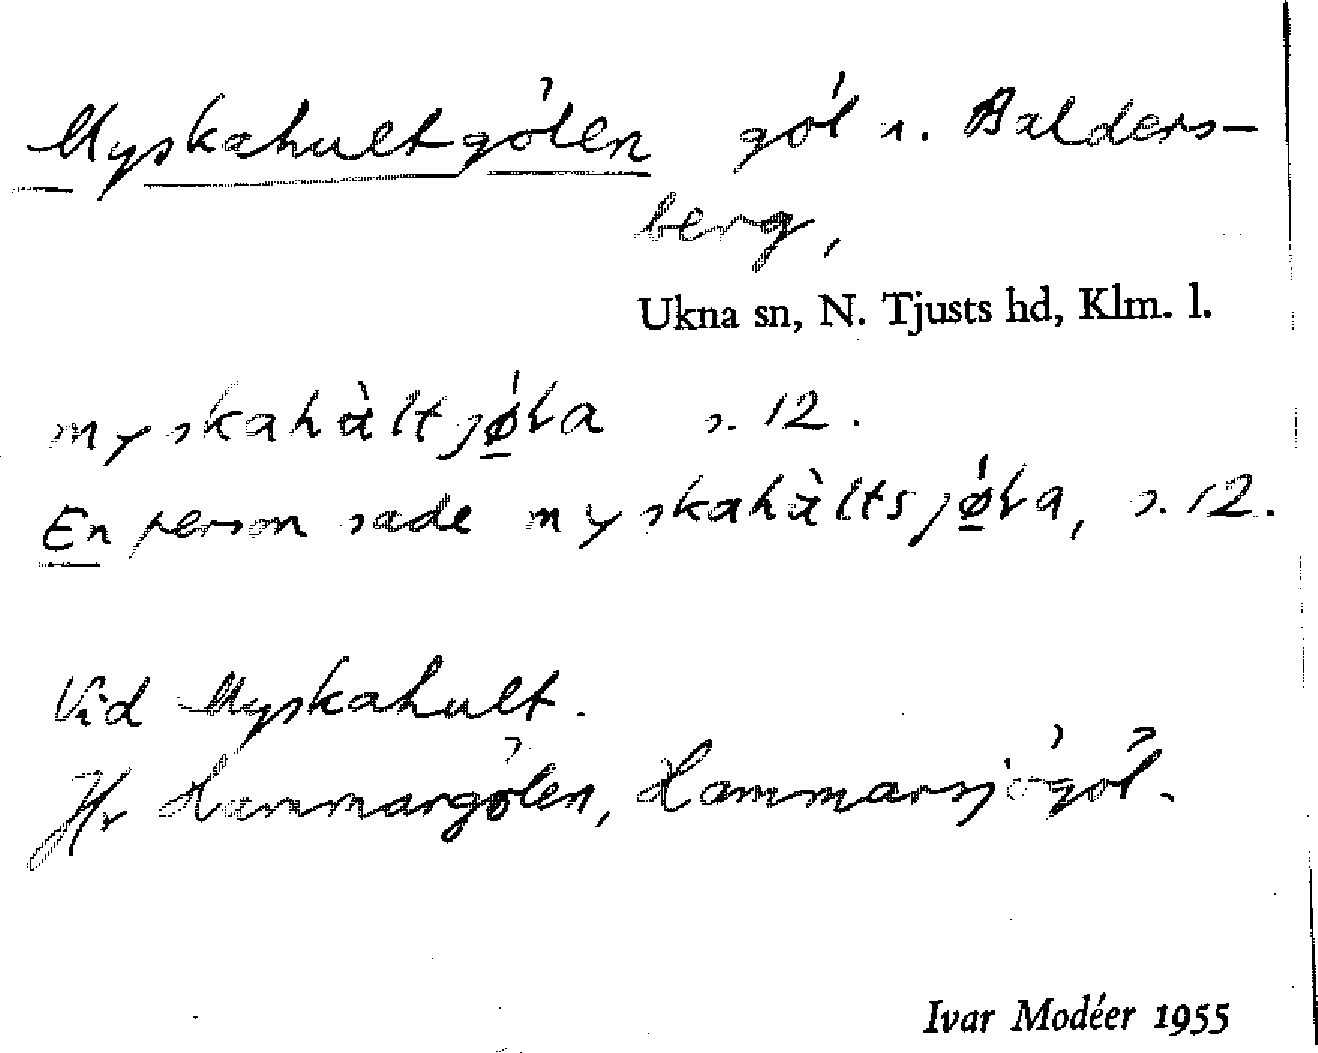 Myskahultgölen göl s. Balders-
berg,
Ukna sn, N. Tjusts hd, Klm. l.
myskahàltjǿla s. 12.
En person sade myskahàltsjǿla, s. 12.
Vid Myskahult.
Jfr Hammargölen, Hammarsjögöl.
Ivar Modéer 1955